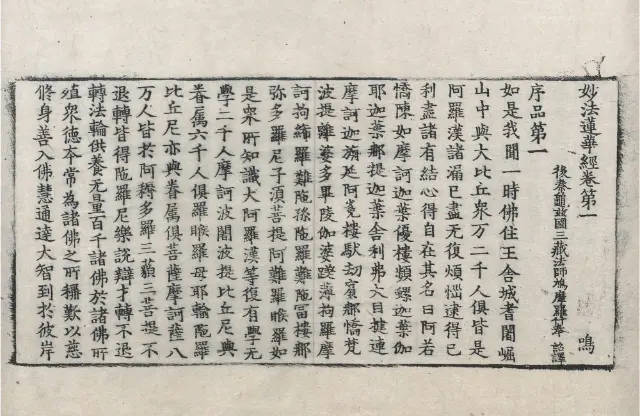 妙法蓮華經卷第一
鳴
後秦龜茲國三藏法師鳩摩羅什奉 詔譯
序品第一
如是我聞一時佛住王舍城耆闍崛
山中與大比丘衆万二千人俱皆是
阿羅漢諸漏已盡无復煩惱逮得己
利盡諸有結心得自在其名曰阿若
憍陳如摩訶迦葉優樓頻螺迦葉伽
耶迦葉那提迦葉舍利弗大目揵連
摩訶迦旃延阿㝹樓馱劫賓那憍梵
波提離婆多畢陵伽婆蹉薄拘羅摩
訶拘絺羅難陁孫陁羅難陁富樓那
弥多羅尼子須菩提阿難羅睺羅如
是衆所知識大阿羅漢等復有學无
學二千人摩訶波闍波提比丘尼與
眷属六千人俱羅睺羅母耶輸陁羅
比丘尼亦與眷属俱菩薩摩訶薩八
万人皆於阿耨多羅三藐三菩提不
退轉皆得陁羅尼樂說辯才轉不退
轉法輪供養无量百千諸佛於諸佛所
殖衆德本常為諸佛之所稱歎以慈
脩身善入佛慧通達大智到於彼岸